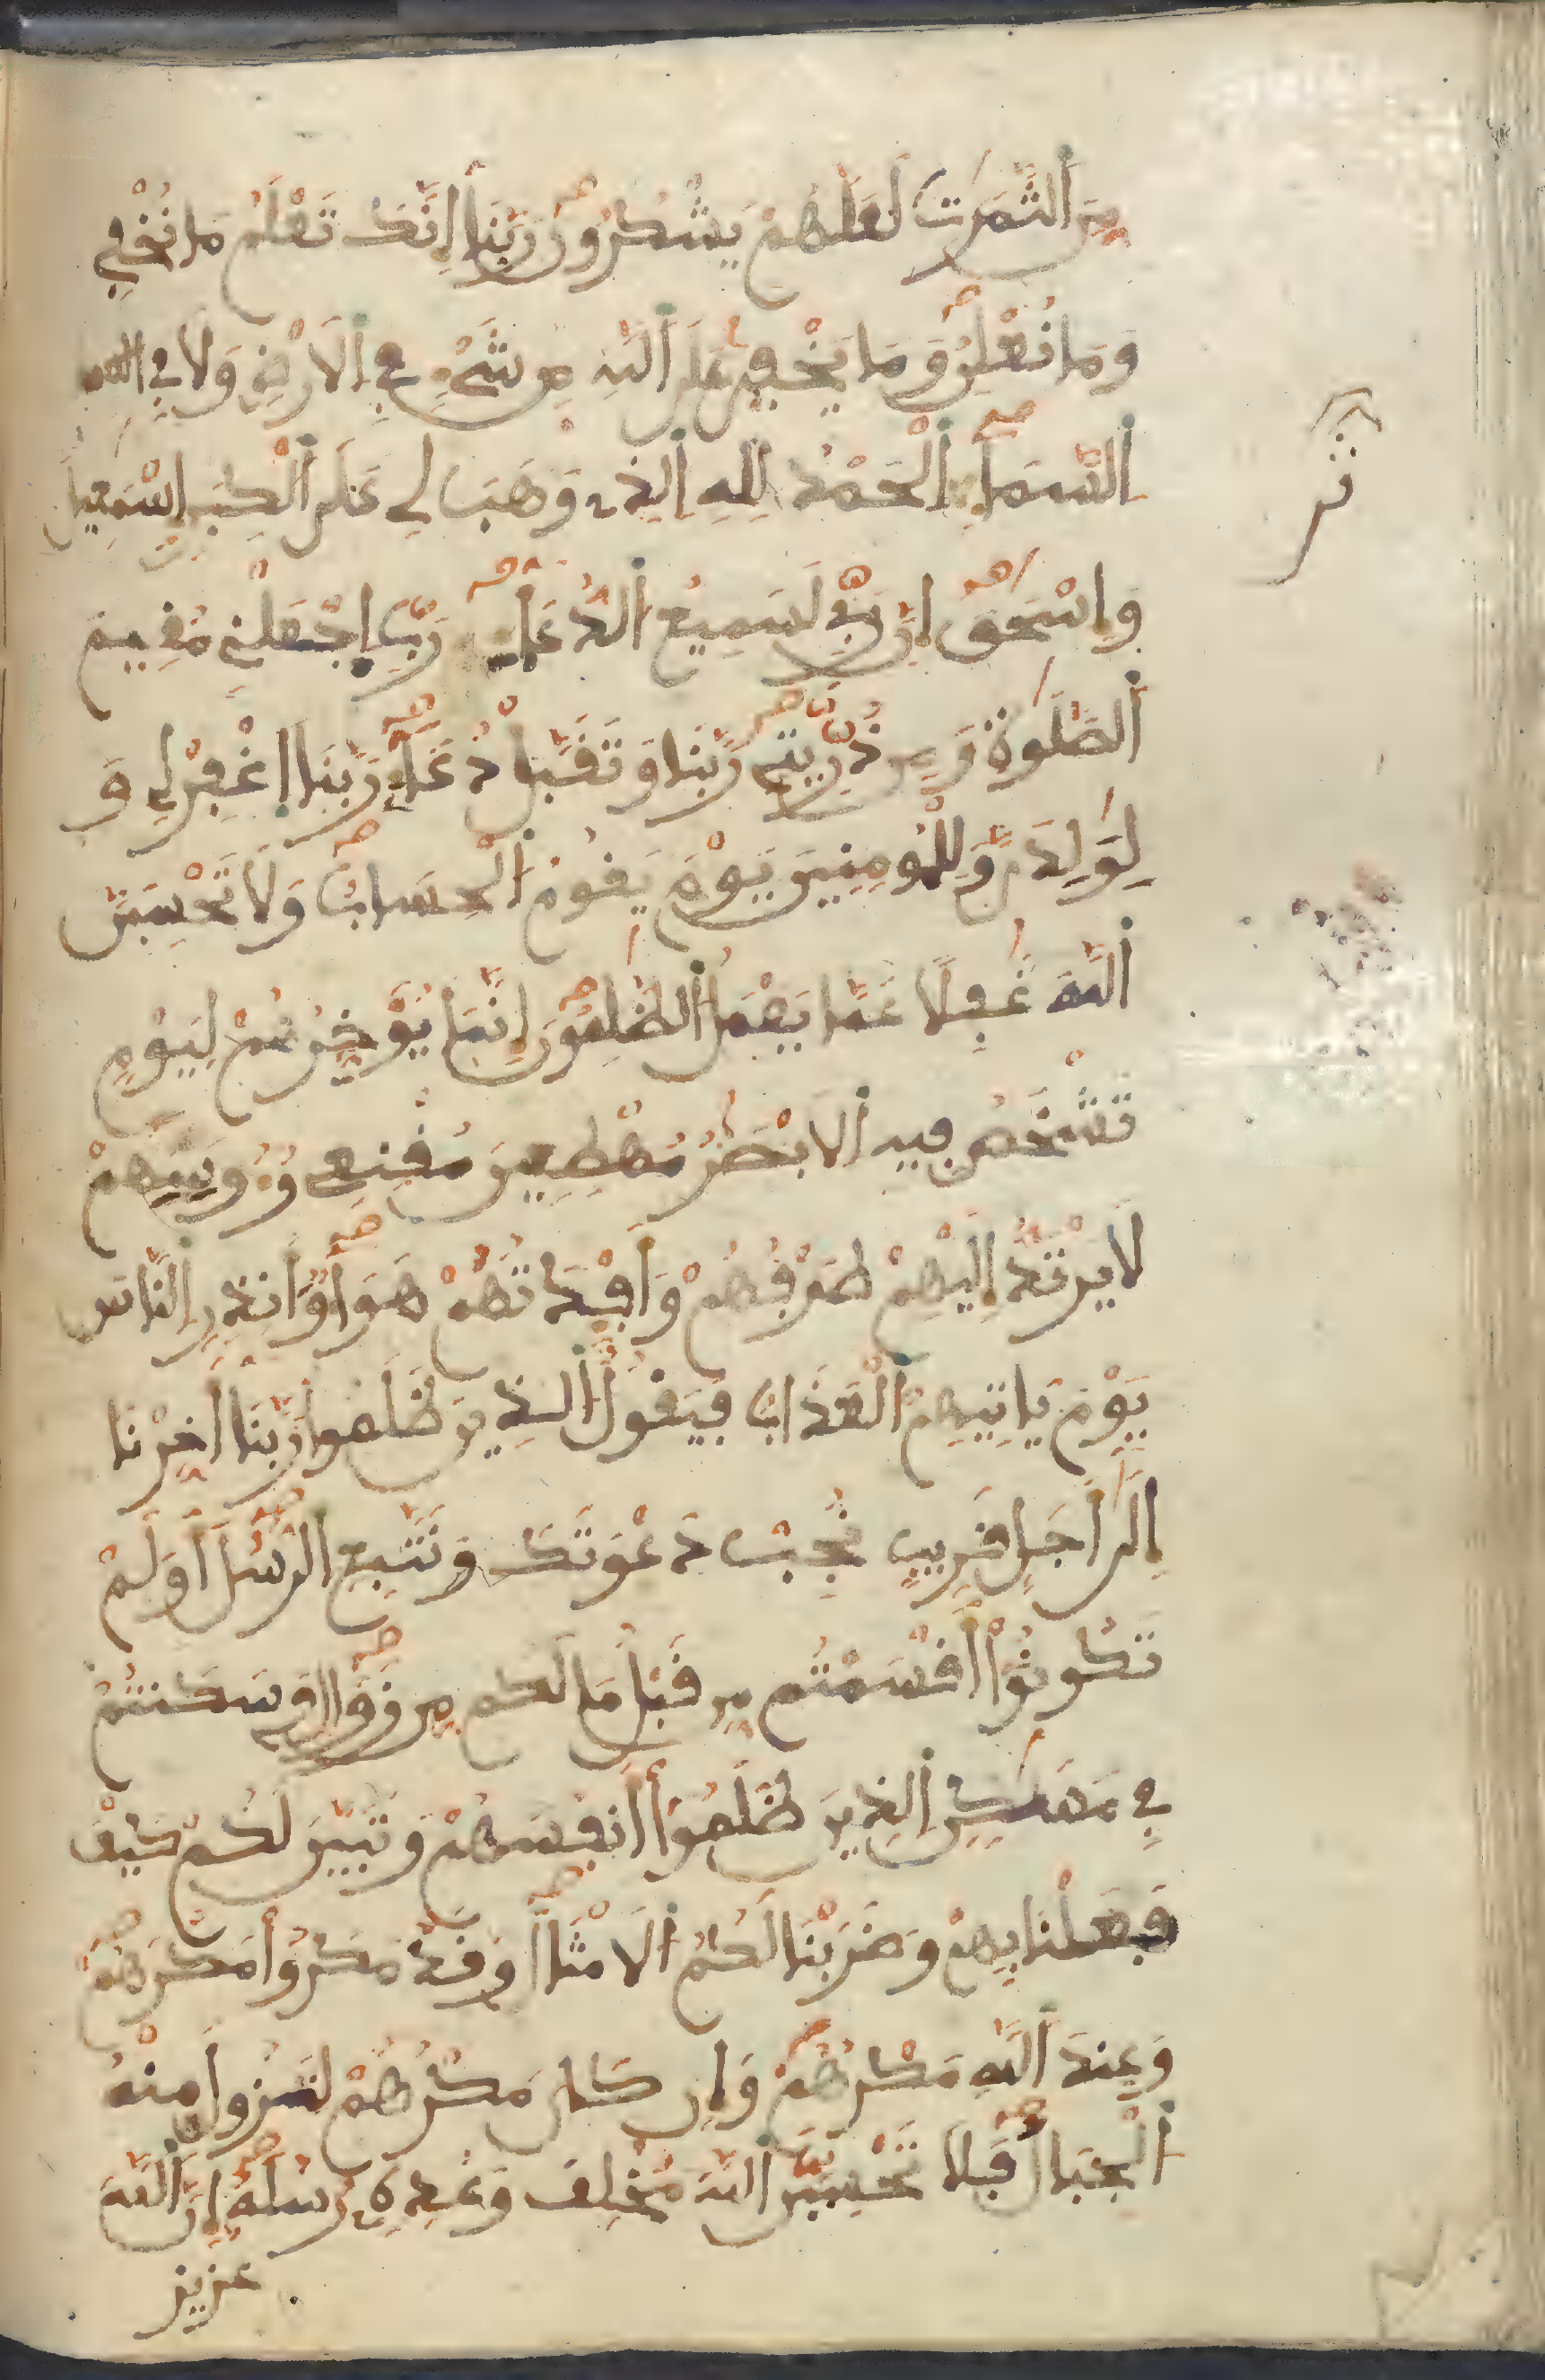 مِنَ ٱلثَّمَرَٰتِ لَعَلَّهُمْ يَشْكُرُونَ رَبَّنَا إِنَّكَ تَعْلَمُ مَا نُخْفِے
وَمَا نُعْلِنُ وَمَا يَخْفىٰ عَلَى ٱللَّهِ مِن شَےْءٍ فِے اِ۬لَارْضِ وَلَا فِے
ٱلسَّمَآءِ ٱلْحَمْدُ لِلهِ اِ۬لذِے وَهَبَ لِے عَلَى ٱلْكِبَرِ إِسْمَٰعِيلَ
وَإِسْحَٰقَ إِنَّ رَبِّے لَسَمِيعُ ٱلدُّعَآءِ رَبِّ اِجْعَلْنِے مُقِيمَ
ٱلصَّلَوٰةِ وَمِن ذُرِّيَّتِے رَبَّنَا وَتَقَبَّلْ دُعَآءِ رَبَّنَا اَ۪غْفِرْ لِے وَ
لِوَٰلِدَيَّ وَلِلْمُومِنِينَ يَوْمَ يَقُومُ ٱلْحِسَابُ وَلَا تَحْسِبَنَّ
ٱللَّهَ غَٰفِلًا عَمَّا يَعْمَلُ ٱلظَّٰلِمُونَ إِنَّمَا يُؤَخِّرُهُمْ لِيَوْمٍ
تَشْخَصُ فِيهِ اِ۬لَابْصَٰرُ مُهْطِعِينَ مُقْنِعِے رُءُوسِهِمْ
لَا يَرْتَدُّ إِلَيْهِمْ طَرْفُهُمْ وَأَفْـِٕدَتُهُمْ هَوَآءٌ وَأَنذِرِ اِ۬لنَّاسَ
يَوْمَ يَاتِيهِمُ ٱلْعَذَابُ فَيَقُولُ ٱلذِينَ ظَلَمُواْ رَبَّنَا أَخِّرْنَا
إِلَىٰ أَجَلٍ قَرِيبٍ نُّجِبْ دَعْوَتَكَ وَنَتَّبِعِ اِ۬لرُّسُلَ أَوَلَمْ
تَكُونُوٓاْ أَقْسَمْتُم مِّن قَبْلُ مَا لَكُم مِّن زَوَالٍ وَسَكَنتُمْ
فِے مَسَٰكِنِ اِ۬لذِينَ ظَلَمُوٓاْ أَنفُسَهُمْ وَتَبَيَّنَ لَكُمْ كَيْفَ
فَعَلْنَا بِهِمْ وَضَرَبْنَا لَكُمُ اُ۬لَامْثَالَ وَقَدْ مَكَرُواْ مَكْرَهُمْ
وَعِندَ ٱللَّهِ مَكْرُهُمْ وَإِن كَانَ مَكْرُهُمْ لِتَزُولَ مِنْهُ
ٱلْجِبَالُ فَلَا تَحْسِبَنَّ ٱللَّهَ مُخْلِفَ وَعْدِهِ رُسُلَهُ إِنَّ ٱللَّهَ
عزيز